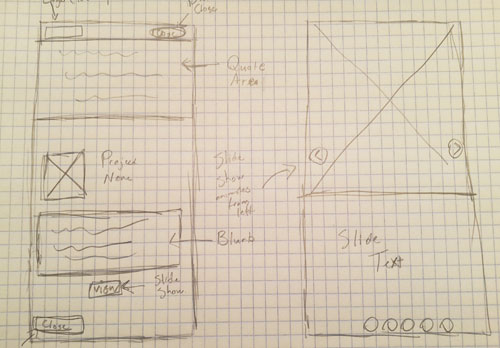 Close
Quote
Area
Project
Name
Slide
Show
from
left
Blurb
View
Slide
Show
Close
Slide
Text